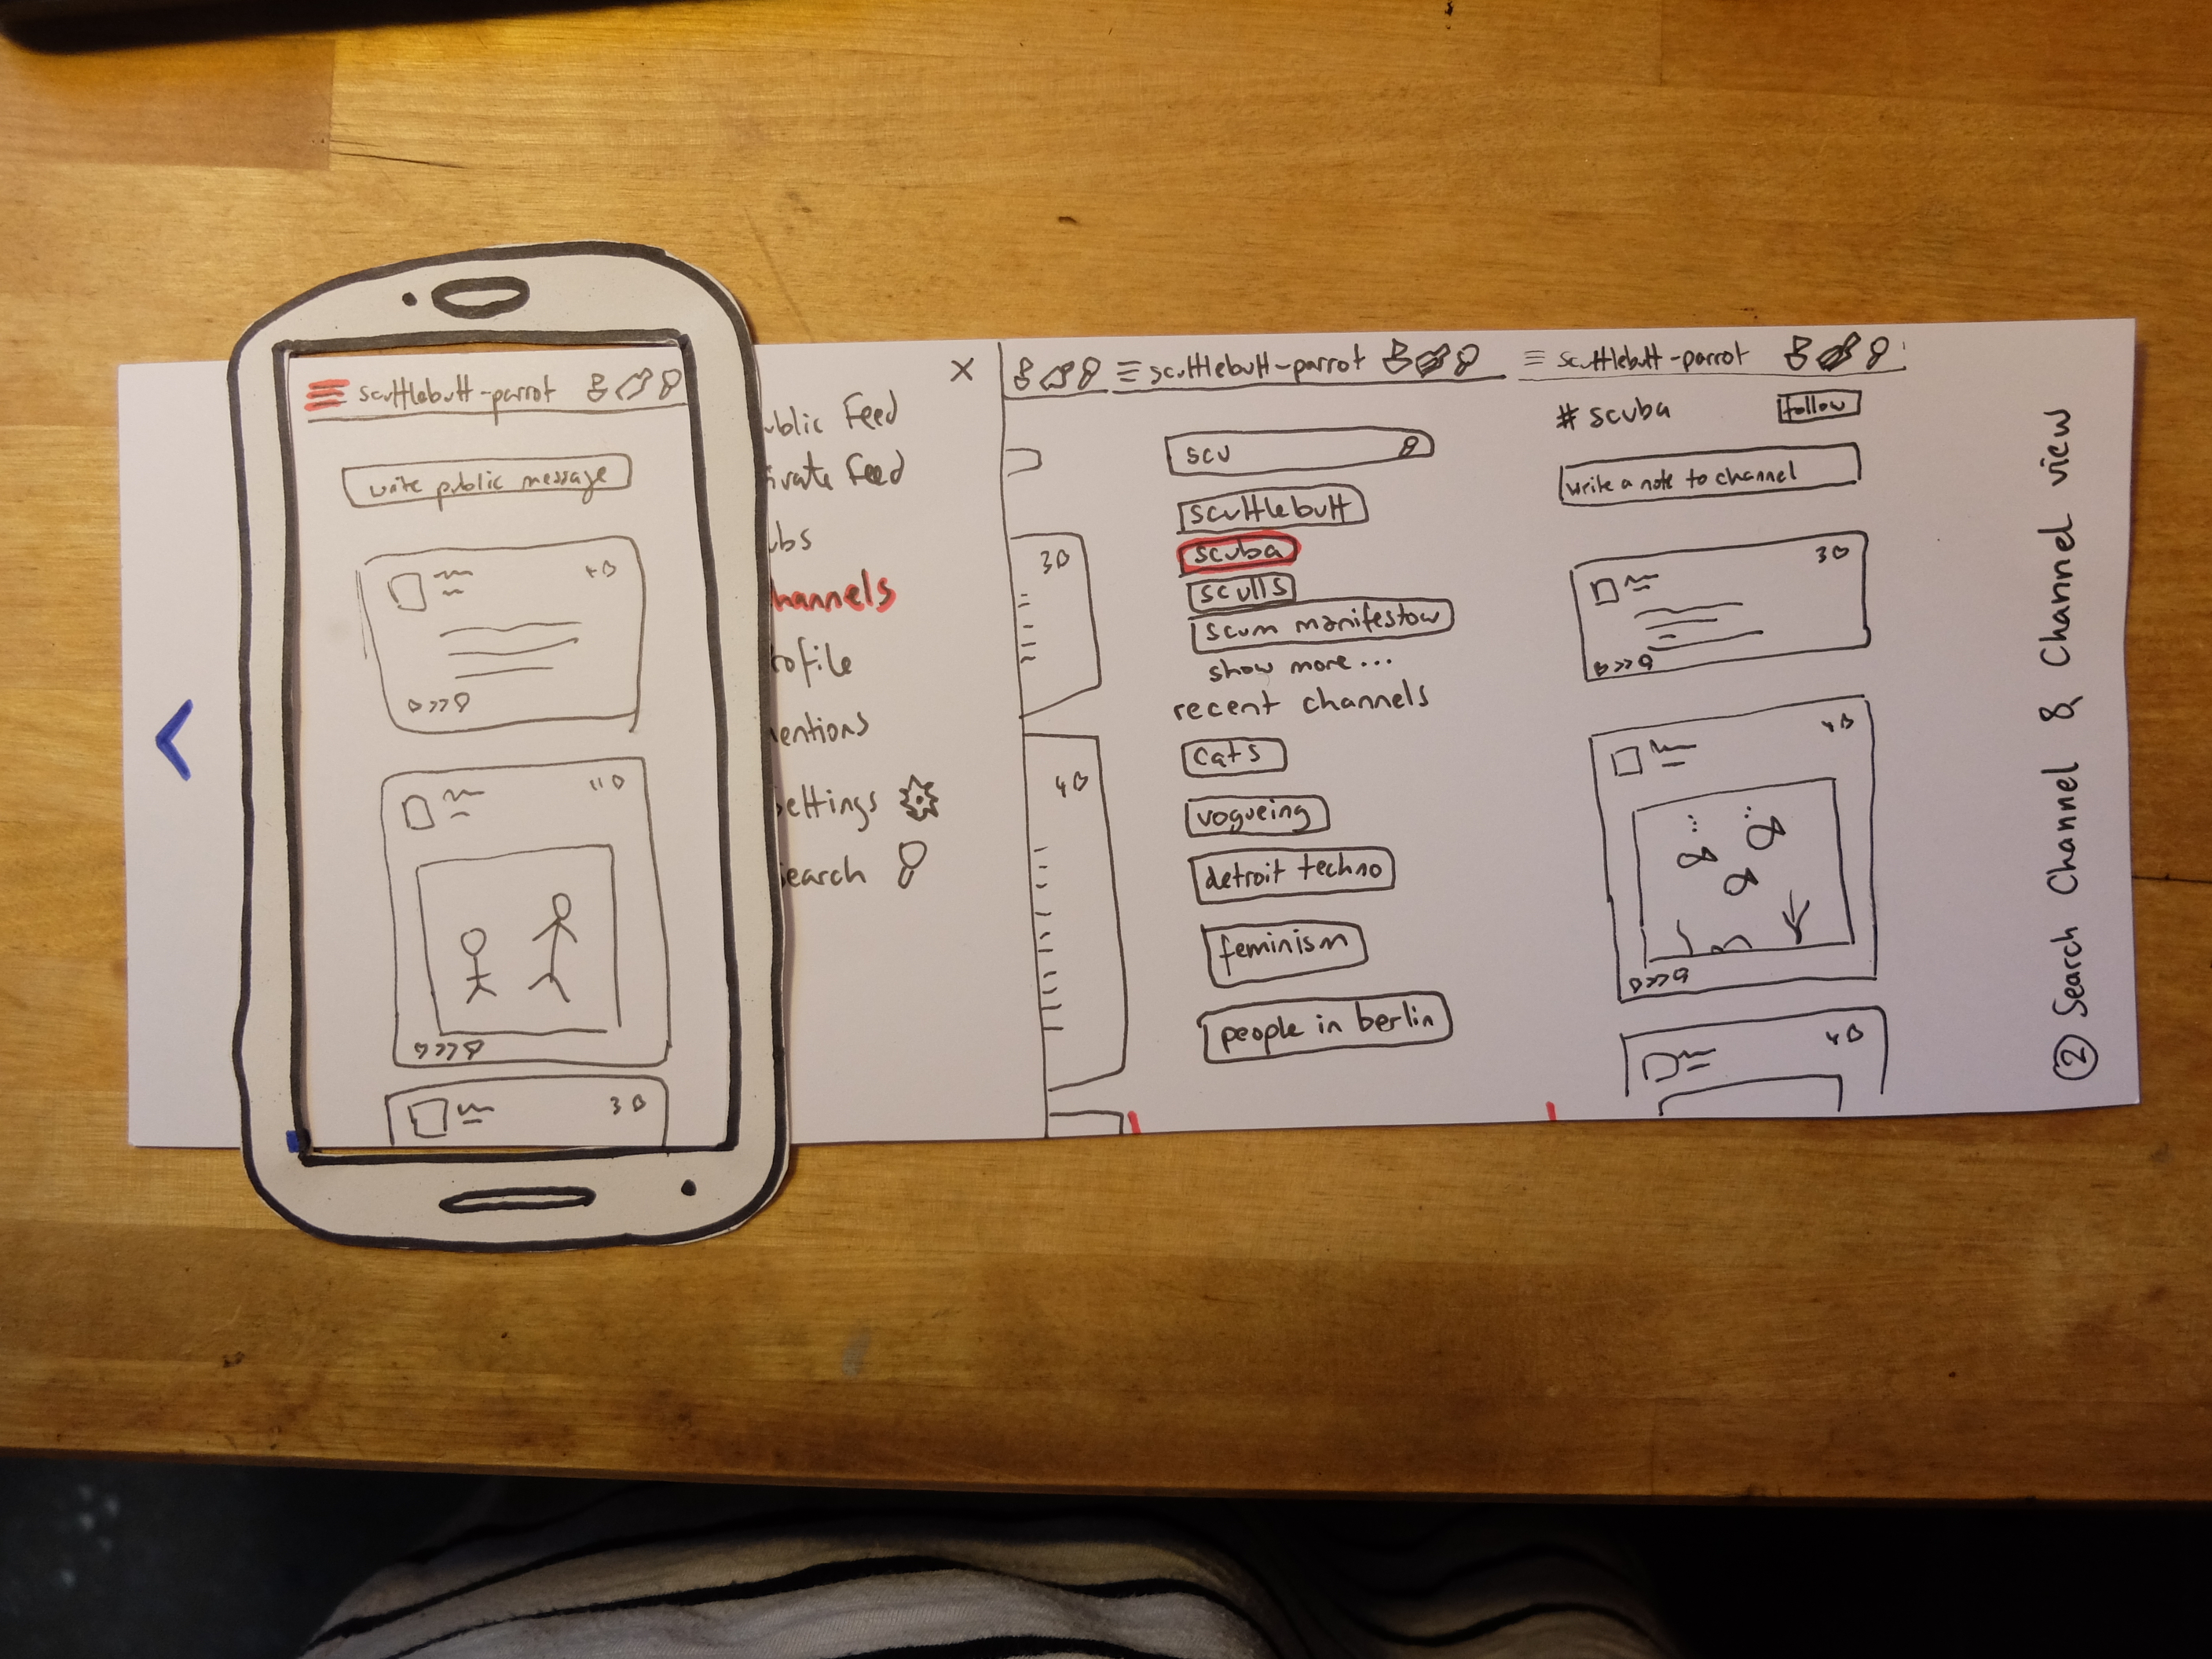 scuttlebutt-parrot
write public message
4
11
3
X
ublic Feed
ivate Feed
ubs
hannels
rofile
entions
ettings
earch
3
4
scuttlebutt-parrot
scu
scuttlebutt
scuba
sculls
scum manifestow
show more...
recent channels
cats
vogueing
detroit techno
feminism
people in berlin
scuttlebutt-parrot
# scuba
follow
write a note to channel
3
4
4
② Search Channel & Channel view